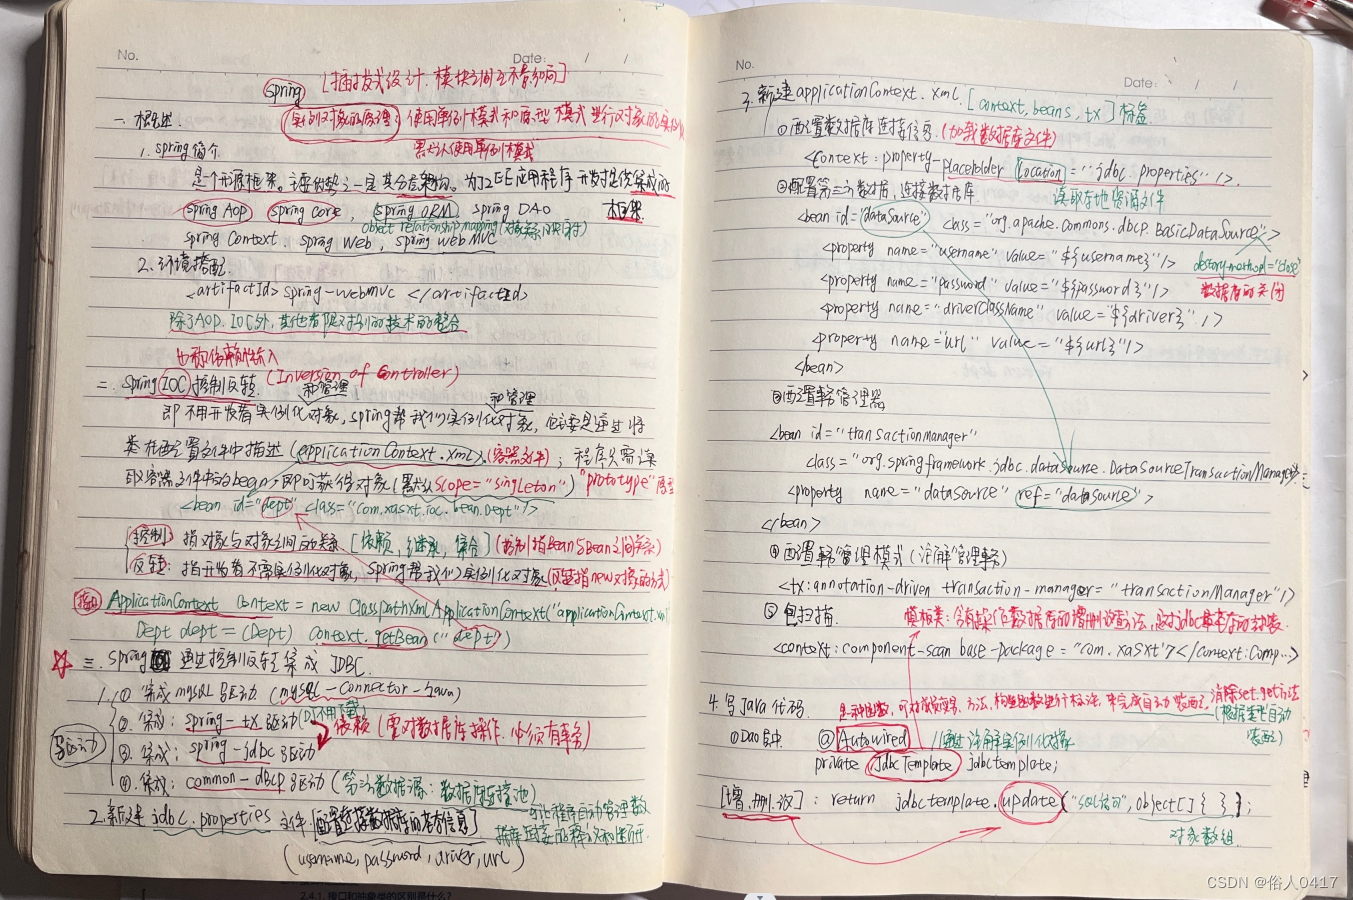 No.
Date: / /
Spring [插拔式设计.模块之间互不影响]
一.概述.
实例对象的原理:使用单例模式和原型模式进行对象的实例化
默认使用单例模式
1.spring简介
是个开源框架。主要优势之一是其分层架构。为J2EE应用程序开发提供集成的框架
spring Aop spring core, spring ORM, spring DAO
object relationship mapping(对象关系映射)
spring Context, spring web, spring webMVC
2.环境搭配.
<artifactId>spring-webmvc </artifactId>
除了AOP、IOC外,其他都是对别的技术的整合
也称依赖性输入
二.Spring IOC 控制反转.(Inversion of Controller)
和管理
和管理
即不用开发者实例化对象,spring帮我们实例化对象,它主要是通过将
类在配置文件中描述(applicationContext.xml)(容器文件);程序只需读
取容器文件中的bean,即可获得对象(默认scope="singleton")"prototype"原型
<bean id="dept" class="com.xasxt.ioc.bean.Dept"/>
控制:指对象与对象之间的关系[依赖,继承,集合](控制指Bean与Bean之间关系)
反转:指开发者不需实例化对象,Spring帮我们实例化对象(反转指new对象的方式)
接口 ApplicationContext context = new ClassPathXmlApplicationContext("applicationContext.xml"
Dept dept = (Dept) context.getBean("dept")
三.spring 通过控制反转集成JDBC.
1.①集成mysql驱动(mysql-connector-java)
②.集成:spring-tx驱动(可不用下载)
依赖(需对数据库操作.必须有事务)
驱动
③.集成:spring-jdbc驱动
④.集成:common-dbcp驱动(第三方数据源:数据库连接池)
2.新建jdbc.properties文件.[配置连接数据库的基本信息]
(username,password,driver,url)
No.
Date: / /
3.新建applicationContext.xml.[context,beans,tx]标签
①配置数据库连接信息(加载数据库文件)
<context:property-placeholder location="jdbc.properties"/>.
读取本地资源文件
②配置第三方数据源,连接数据库
<bean id="dataSource" class="org.apache.commons.dbcp.BasicDataSource">
destory-method="close"
<property name="username" value="${username}"/>
数据库的关闭
<property name="password" value="${password}"/>
<property name="driverClassName" value="${driver}"/>
<property name="url" value="${url}"/>
</bean>
③配置事务管理器
<bean id="transactionManager"
class="org.springframework.jdbc.datasource.DataSourceTransactionManager">
<property name="dataSource" ref="dataSource">
</bean>
④配置事务管理模式(注解管理事务)
<tx:annotation-driven transaction-manager="transactionManager"/>
⑤包扫描.
<context:component-scan base-package="com.xasxt"></context:Comp...>
4.写Java代码.
(根据类型自动装配)
①Dao层中. @Autowired //通过注解实例化对象
private JdbcTemplate jdbctemplate;
[增.删.改]: return jdbctemplate.update("sql语句",object[]{ });
对象数组.
CSDN @俗人0417